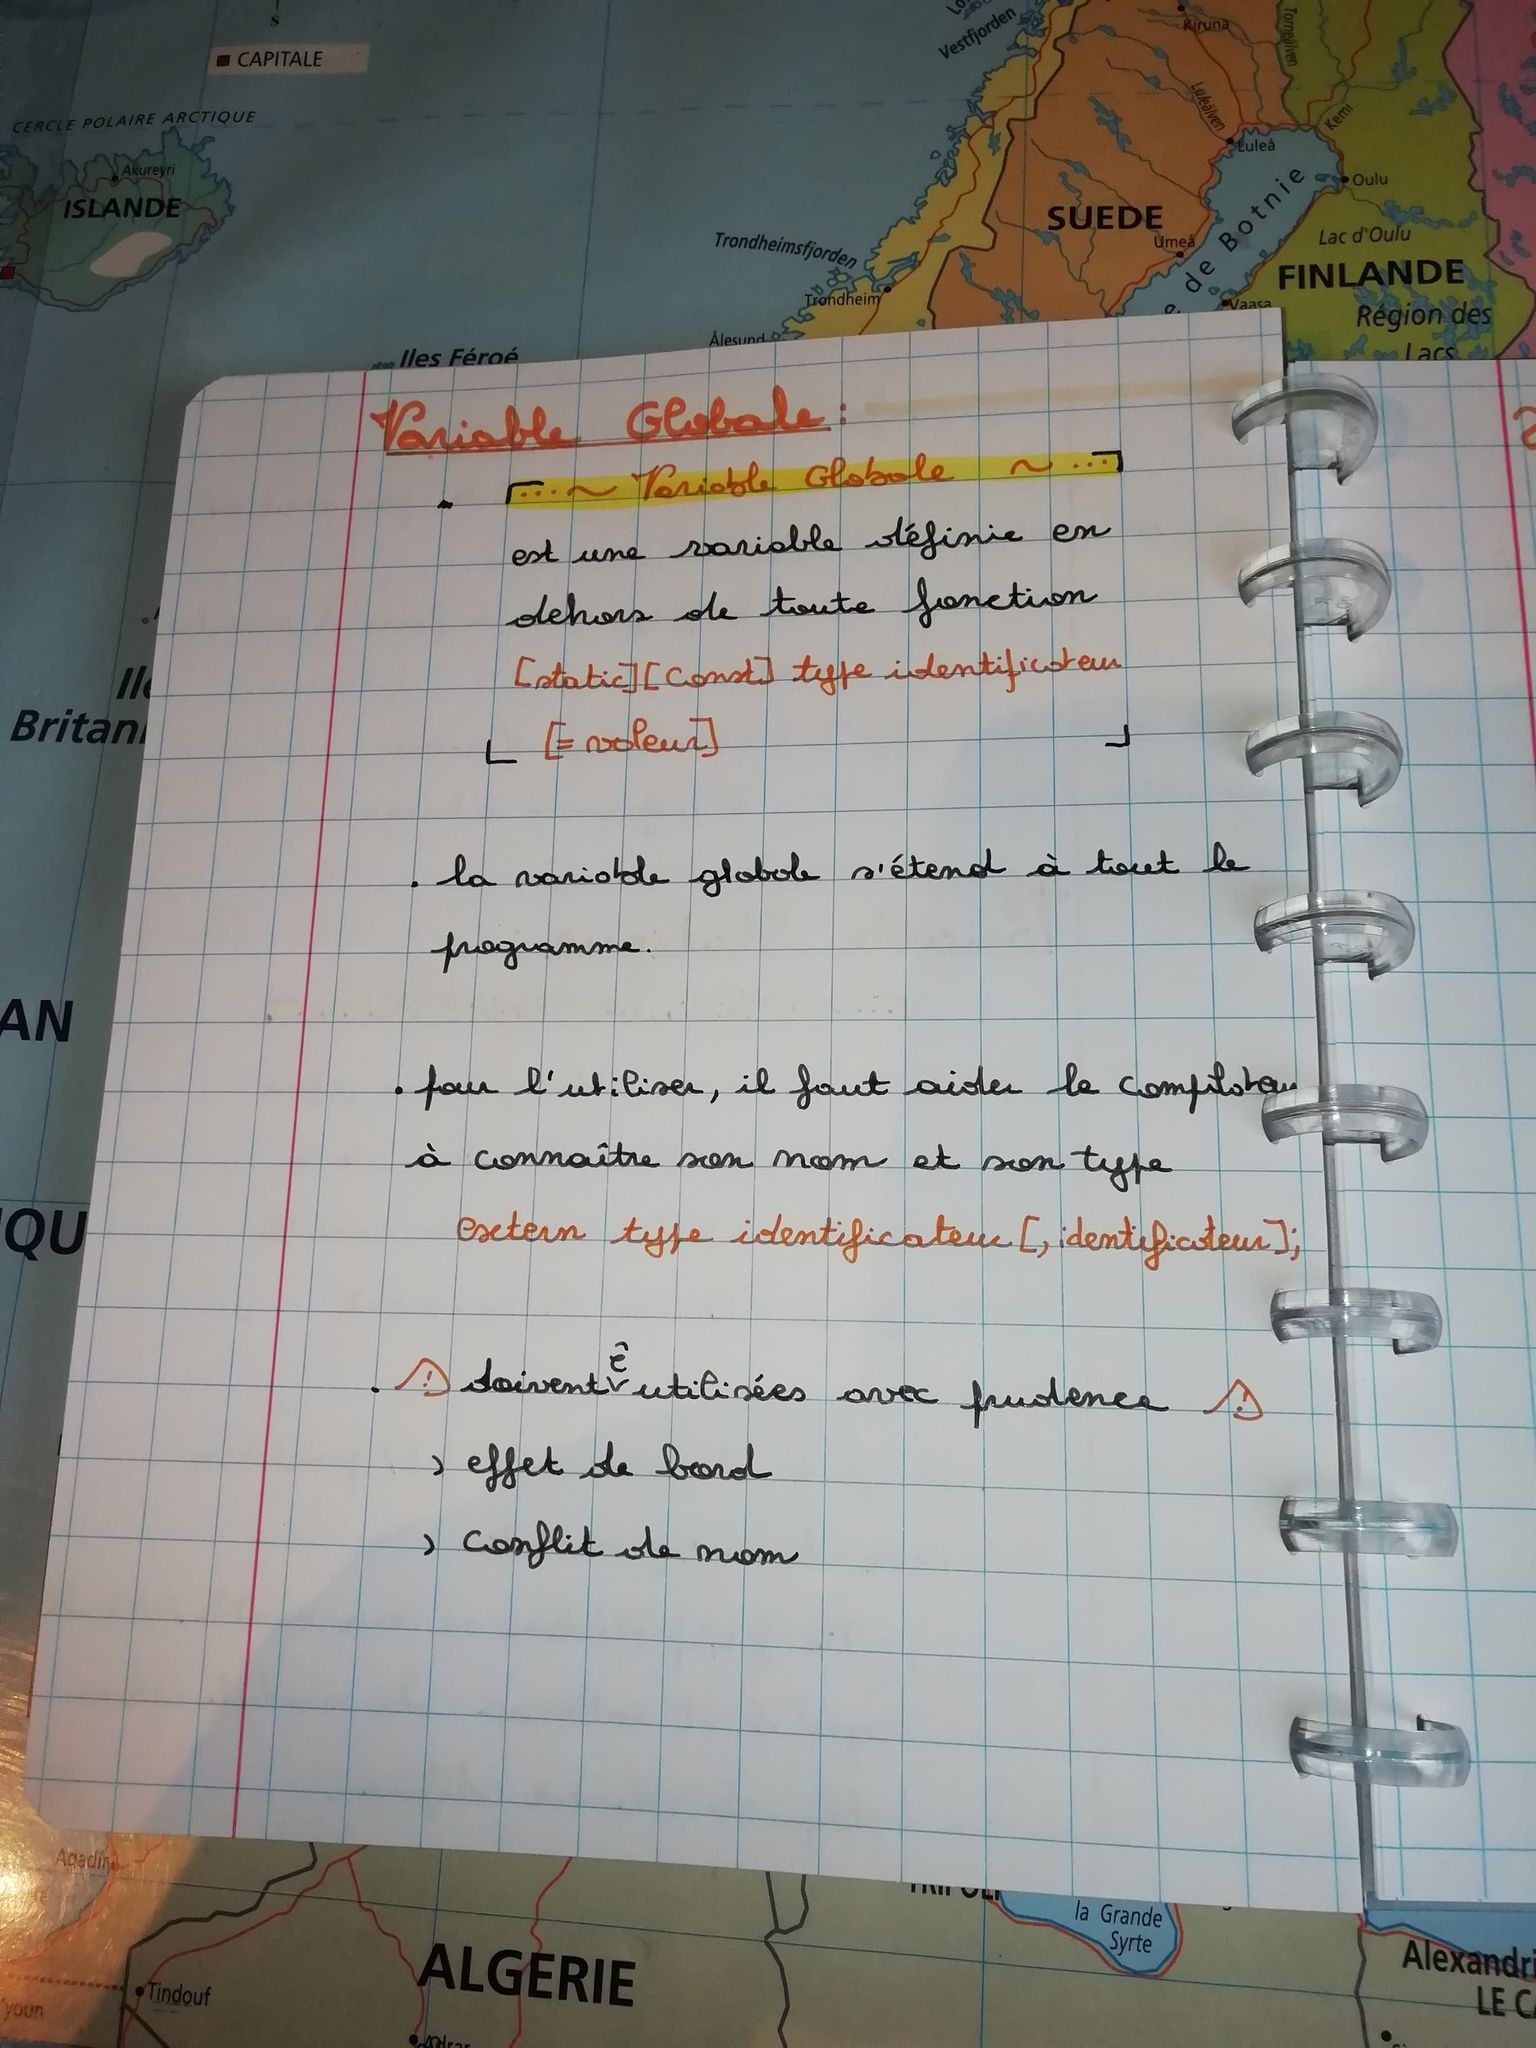 S
CAPITALE
CERCLE POLAIRE ARCTIQUE
Akureyri
ISLANDE
Vestfjorden
Kiruna
Torneälven
Luleälven
Kemi
Luleå
Oulu
SUEDE
Umeå
e de Botnie
Lac d'Oulu
FINLANDE
Vaasa
Région des
Lacs
Trondheimsfjorden
Trondheim
Ålesund
Iles Féroé
Britani
AN
QU
Variable Globale :
... ~ Variable Globale ~ ...
est une variable définie en
dehors de toute fonction
[static][const] type identificateur
[= valeur]
. la variable globale s'étend à tout le
programme.
. pour l'utiliser, il faut aider le compilateur
à connaître son nom et son type
extern type identificateur [, identificateur];
. ⚠ doivent ê utilisées avec prudence ⚠
> effet de bord
> conflit de nom
Agadir
la Grande
Syrte
ALGERIE
Tindouf
Adrar
youn
Alexandri
LE CA